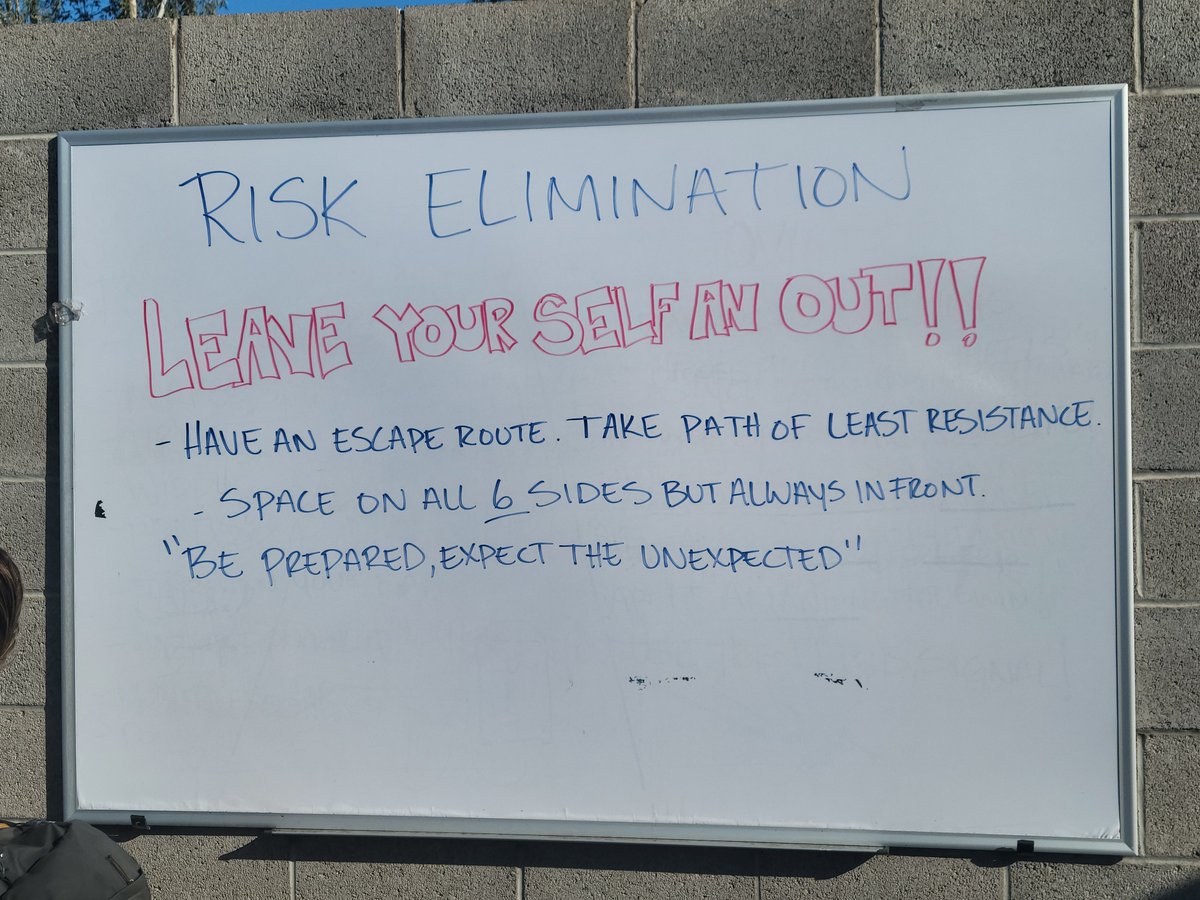 RISK ELIMINATION
LEAVE YOUR SELF AN OUT!!
- HAVE AN ESCAPE ROUTE. TAKE PATH OF LEAST RESISTANCE.
- SPACE ON ALL 6 SIDES BUT ALWAYS IN FRONT.
"BE PREPARED, EXPECT THE UNEXPECTED"